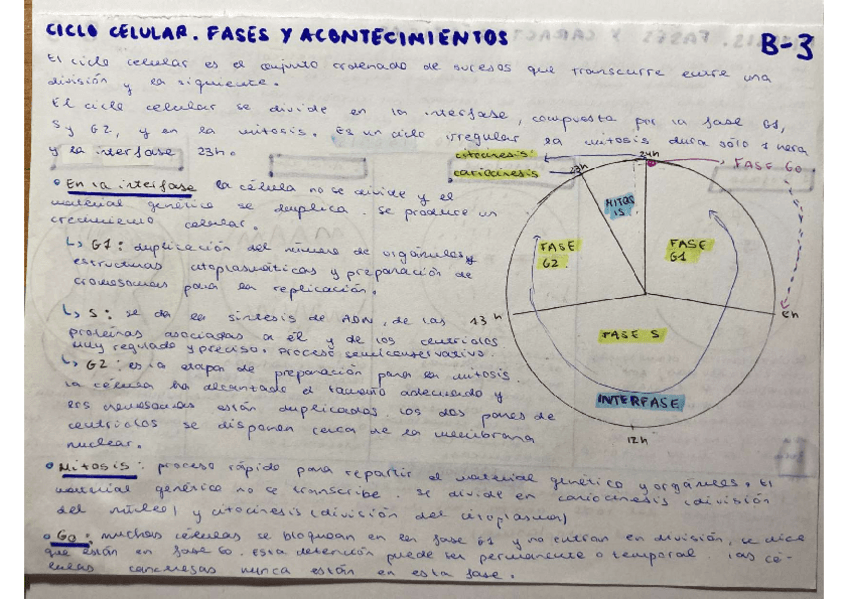 CICLO CELULAR. FASES Y ACONTECIMIENTOS
B-3
El ciclo celular es el conjunto ordenado de sucesos que transcurre entre una
división y la siguiente.
El ciclo celular se divide en la interfase, compuesta por la fase G1,
S y G2, y en la mitosis. Es un ciclo irregular la mitosis dura sólo 1 hora
y la interfase 23h.
• En la interfase la célula no se divide y el
material genético se duplica. Se produce un
crecimiento celular.
↳ G1: duplicación del número de orgánulos y
estructuras citoplasmáticas y preparación de
cromosomas para la replicación.
↳ S: se da la síntesis de ADN, de las
proteínas asociadas a él y de los centriolos
muy regulado y preciso. Proceso semiconservativo.
↳ G2: es la etapa de preparación para la mitosis.
la célula ha alcanzado el tamaño adecuado y
los cromosomas están duplicados. los dos pares de
centriolos se disponen cerca de la membrana
nuclear.
citocinesis
cariocinesis
23h
24h
FASE G0
MITOS
IS
FASE
G2
FASE
G1
13h
FASE S
INTERFASE
12h
• Mitosis: proceso rápido para repartir el material genético y orgánulos. El
material genético no se transcribe. Se divide en cariocinesis (división
del núcleo) y citocinesis (división del citoplasma)
• G0: muchas células se bloquean en la fase G1 y no entran en división, se dice
que están en fase G0. Esta detención puede ser permanente o temporal. las cé-
lulas cancerosas nunca están en esta fase.